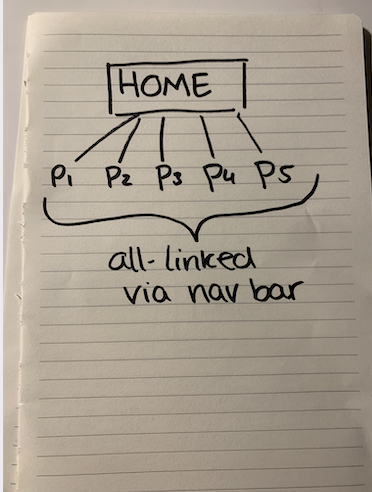 HOME
P1 P2 P3 P4 P5
all-linked
via nav bar